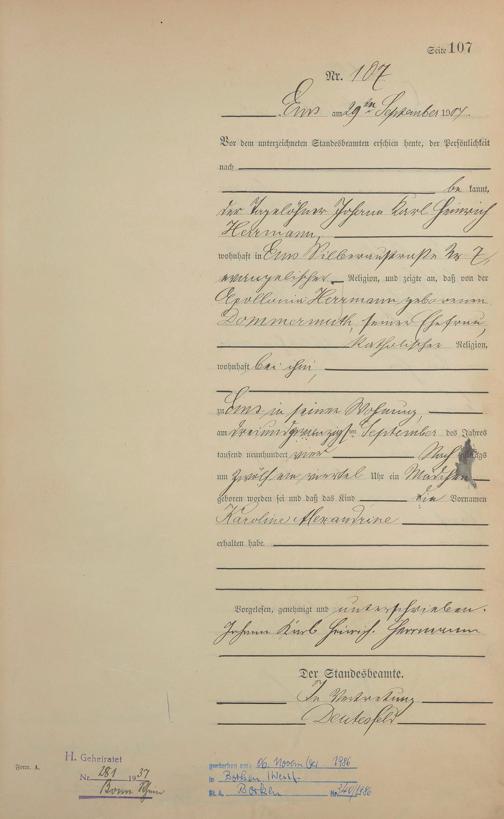 Seite 107
Nr. 107
Ems am 29ten September 1904.
Vor dem unterzeichneten Standesbeamten erschien heute, der Persönlichkeit
nach
be kannt,
der Tagelöhner Johann Karl Heinrich
Herrmann,
wohnhaft in Ems Silberaustraße Nr 7,
evangelischer Religion, und zeigte an, daß von der
Apollonia Herrmann geborenen
Dommermuth, seiner Ehefrau,
katholischer Religion,
wohnhaft bei ihm,
zu Ems in seiner Wohnung,
am dreiundzwanzigsten September des Jahres
tausend neunhundert vier Nachmittags
um zwölf ein viertel Uhr ein Mädchen
geboren worden sei und daß das Kind die Vornamen
Karoline Alexandrine
erhalten habe.
Vorgelesen, genehmigt und unterschrieben.
Johann Karl Heinrich Herrmann
Der Standesbeamte.
In Vertretung
Form. A.
H. Geheiratet
Nr. 281 1937
Bonn Rhein
gestorben am: 06. November 1986
in Borken (Westf.
St. A. Borken Nr. 340/1986